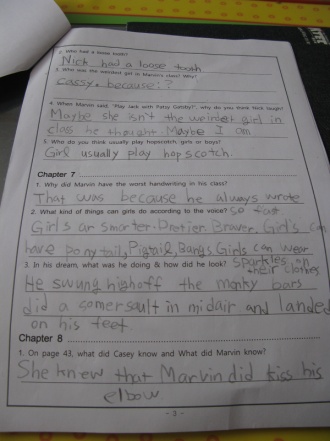 2. Who had a loose tooth?
Nick had a loose tooth
3. Who was the weirdest girl in Marvin's class? Why?
Cassy. because:?
4. When Marvin said, "Play Jack with Patsy Gatsby?", why do you think Nick laugh?
Maybe she isn't the weirdest girl in
class he thought. Maybe I am
5. Who do you think usually play hopscotch, girls or boys?
Girls usually play hopscotch.
Chapter 7
1. Why did Marvin have the worst handwriting in his class?
That was because he always wrote
so fast
2. What kind of things can girls do according to the voice?
Girls ar smarter. Pretier. Braver, Girl's can
have Ponytail, Pigtail, Bangs Girls can wear
sparkles on
their clothes
3. In his dream, what was he doing & how did he look?
He swung high off the monky bars
did a somersault in midair and landed
on his feet
Chapter 8
1. On page 43, what did Casey know and What did Marvin know?
She knew that Marvin did kiss his
elbow.
- 3 -